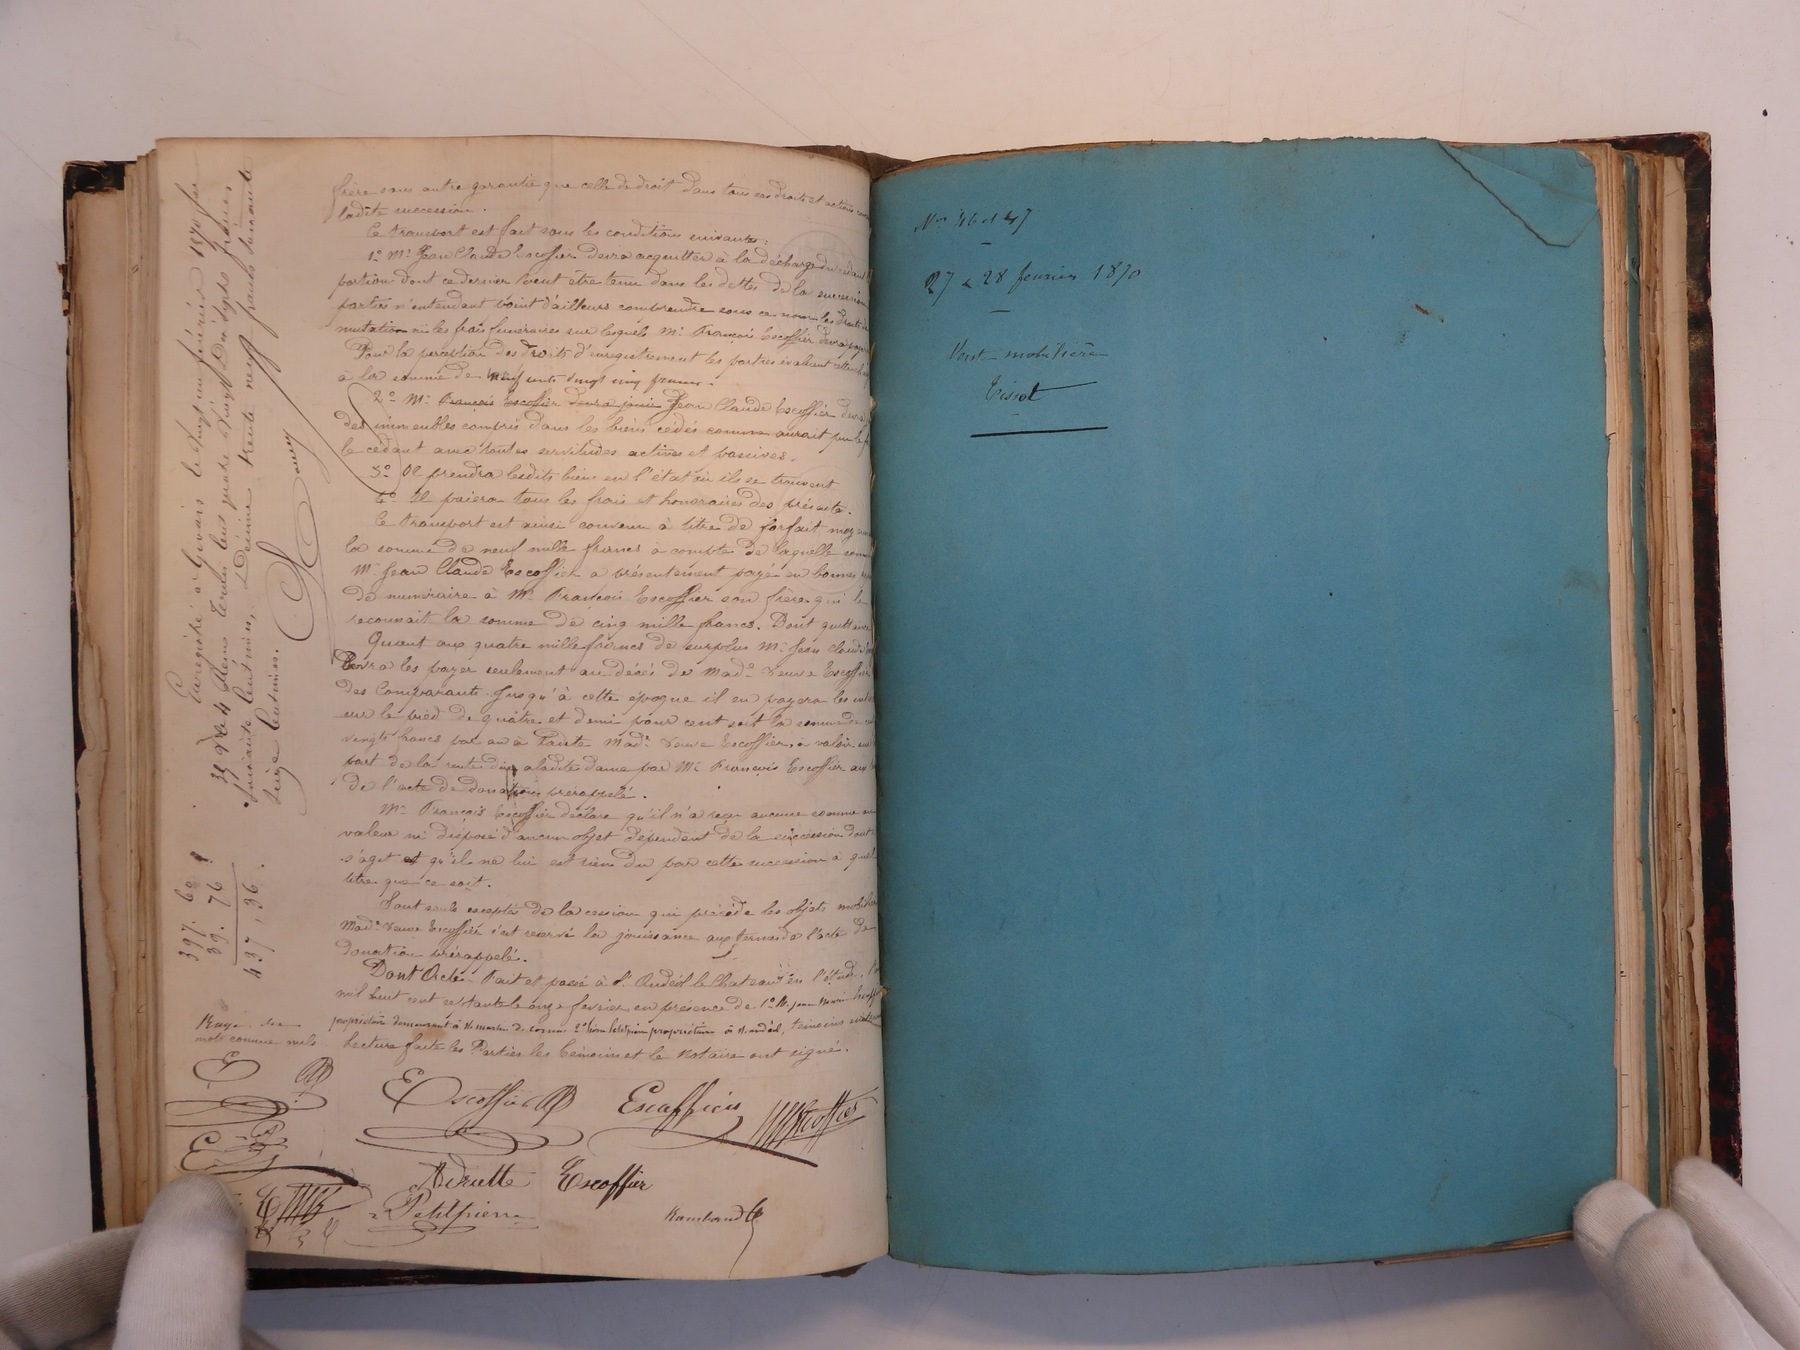 frère sans autre garantie que celle de droit dans tous ses droits et actions
ladite succession.
Ce transport est fait sous les conditions suivantes:
1º Mr Jean Claude Escoffier devra acquitter à la décharge du cédant
portion dont ce dernier peut être tenu dans les dettes de la succession
parties n'entendent point d'ailleurs comprendre sous ce nom les droits de
mutation ni les frais funéraires sur lesquels Mr François Escoffier devra
Pour la perception des droits d'enregistrement les parties évaluent cette
à la somme de neuf cents vingt cinq francs.
2º Mr François Escoffier devra jouir Jean Claude Escoffier devra
des immeubles compris dans les biens cédés comme aurait pu le
le cédant avec toutes servitudes actives et passives.
3º Il prendra lesdits biens en l'état où ils se trouvent
4º Il paiera tous les frais et honoraires des présentes.
Ce transport est ainsi convenu à titre de forfait
la somme de neuf mille francs à compte de laquelle
Mr Jean Claude Escoffier a présentement payé en bonnes
de numéraire à Mr François Escoffier son frère qui le
reconnait la somme de cinq mille francs. Dont quittance
Quant aux quatre mille francs de surplus Mr Jean Claude
devra les payer seulement au décès de Made Veuve Escoffier
des Comparants. Jusqu'à cette époque il en payera les
sur le pied de quatre et demi pour cent soit la somme de
vingts francs par an à ladite Made Veuve Escoffier, à valoir
part de la rente due à ladite dame par Mr François Escoffier aux
de l'acte de donation prérappelé.
Mr François Escoffier déclare qu'il n'a reçu aucune somme
valeur ni disposé d'aucun objet dépendant de la succession dont
s'agit et qu'il ne lui est rien du par cette succession à quel
titre que ce soit.
Sont seuls exceptés de la cession qui précède les objets
Made Veuve Escoffier s'est réservé la jouissance aux termes de l'acte de
donation prérappelé.
Dont Acte. Fait et passé à St Andéol le Chateau en l'étude, l'an
mil huit cent soixante le onze février en présence de 1º Mr Jean
propriétaire demeurant à St martin de cornas 2º Petitpierre propriétaire à St andéol, témoins
Lecture faite les Parties les témoins et le notaire ont signé.
Escoffier
Escoffier
Escoffier
Escoffier
Petitpierre
Rambaud
Enregistré à Givors le vingt un février 1870 fol
39 Vº Cs 4 Reçu trois cent quatre vingt dix sept francs
soixante centimes, décime trente neuf francs soixante
seize Centimes.
397. 60
39. 76
437, 36
Rayé
mots comme nuls
Nos 46 et 47
27 & 28 fevrier 1870
Vente mobilière
Tissot